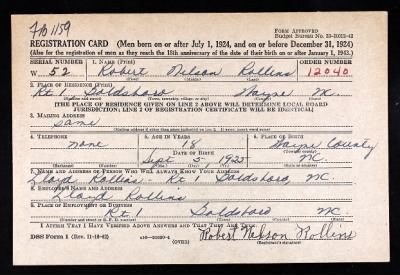 F/B 1159
FORM APPROVED
Budget Bureau No. 33-R012-42
REGISTRATION CARD (Men born on or after July 1, 1924, and on or before December 31, 1924)
(Also for the registration of men as they reach the 18th anniversary of the date of their birth on or after January 1, 1943.)
SERIAL NUMBER 1. NAME (Print) ORDER NUMBER
W 52 Robert Nelson Rollins 12040
(First) (Middle) (Last)
2. PLACE OF RESIDENCE (Print)
Rt 1 Goldsboro Wayne N.C.
(Number and street) (Town, township, village, or city) (County) (State)
[THE PLACE OF RESIDENCE GIVEN ON LINE 2 ABOVE WILL DETERMINE LOCAL BOARD
JURISDICTION; LINE 2 OF REGISTRATION CERTIFICATE WILL BE IDENTICAL]
3. MAILING ADDRESS
Same
4. TELEPHONE 5. AGE IN YEARS 6. PLACE OF BIRTH
none 18 Wayne County
DATE OF BIRTH
Sept 5 1925 N.C.
(Exchange) (Number) (Mo.) (Day) (Yr.)
7. NAME AND ADDRESS OF PERSON WHO WILL ALWAYS KNOW YOUR ADDRESS
Lloyd Rollins - Rt 1 Goldsboro, N.C.
8. EMPLOYER'S NAME AND ADDRESS
Lloyd Rollins
9. PLACE OF EMPLOYMENT OR BUSINESS
Rt 1 Goldsboro N.C.
(Number and street or R. F. D. number) (Town) (County) (State)
I AFFIRM THAT I HAVE VERIFIED ABOVE ANSWERS AND THAT THEY ARE TRUE.
DSS Form 1 (Rev. 11-16-42) (OVER) Robert Nelson Rollins
(Registrant's signature)